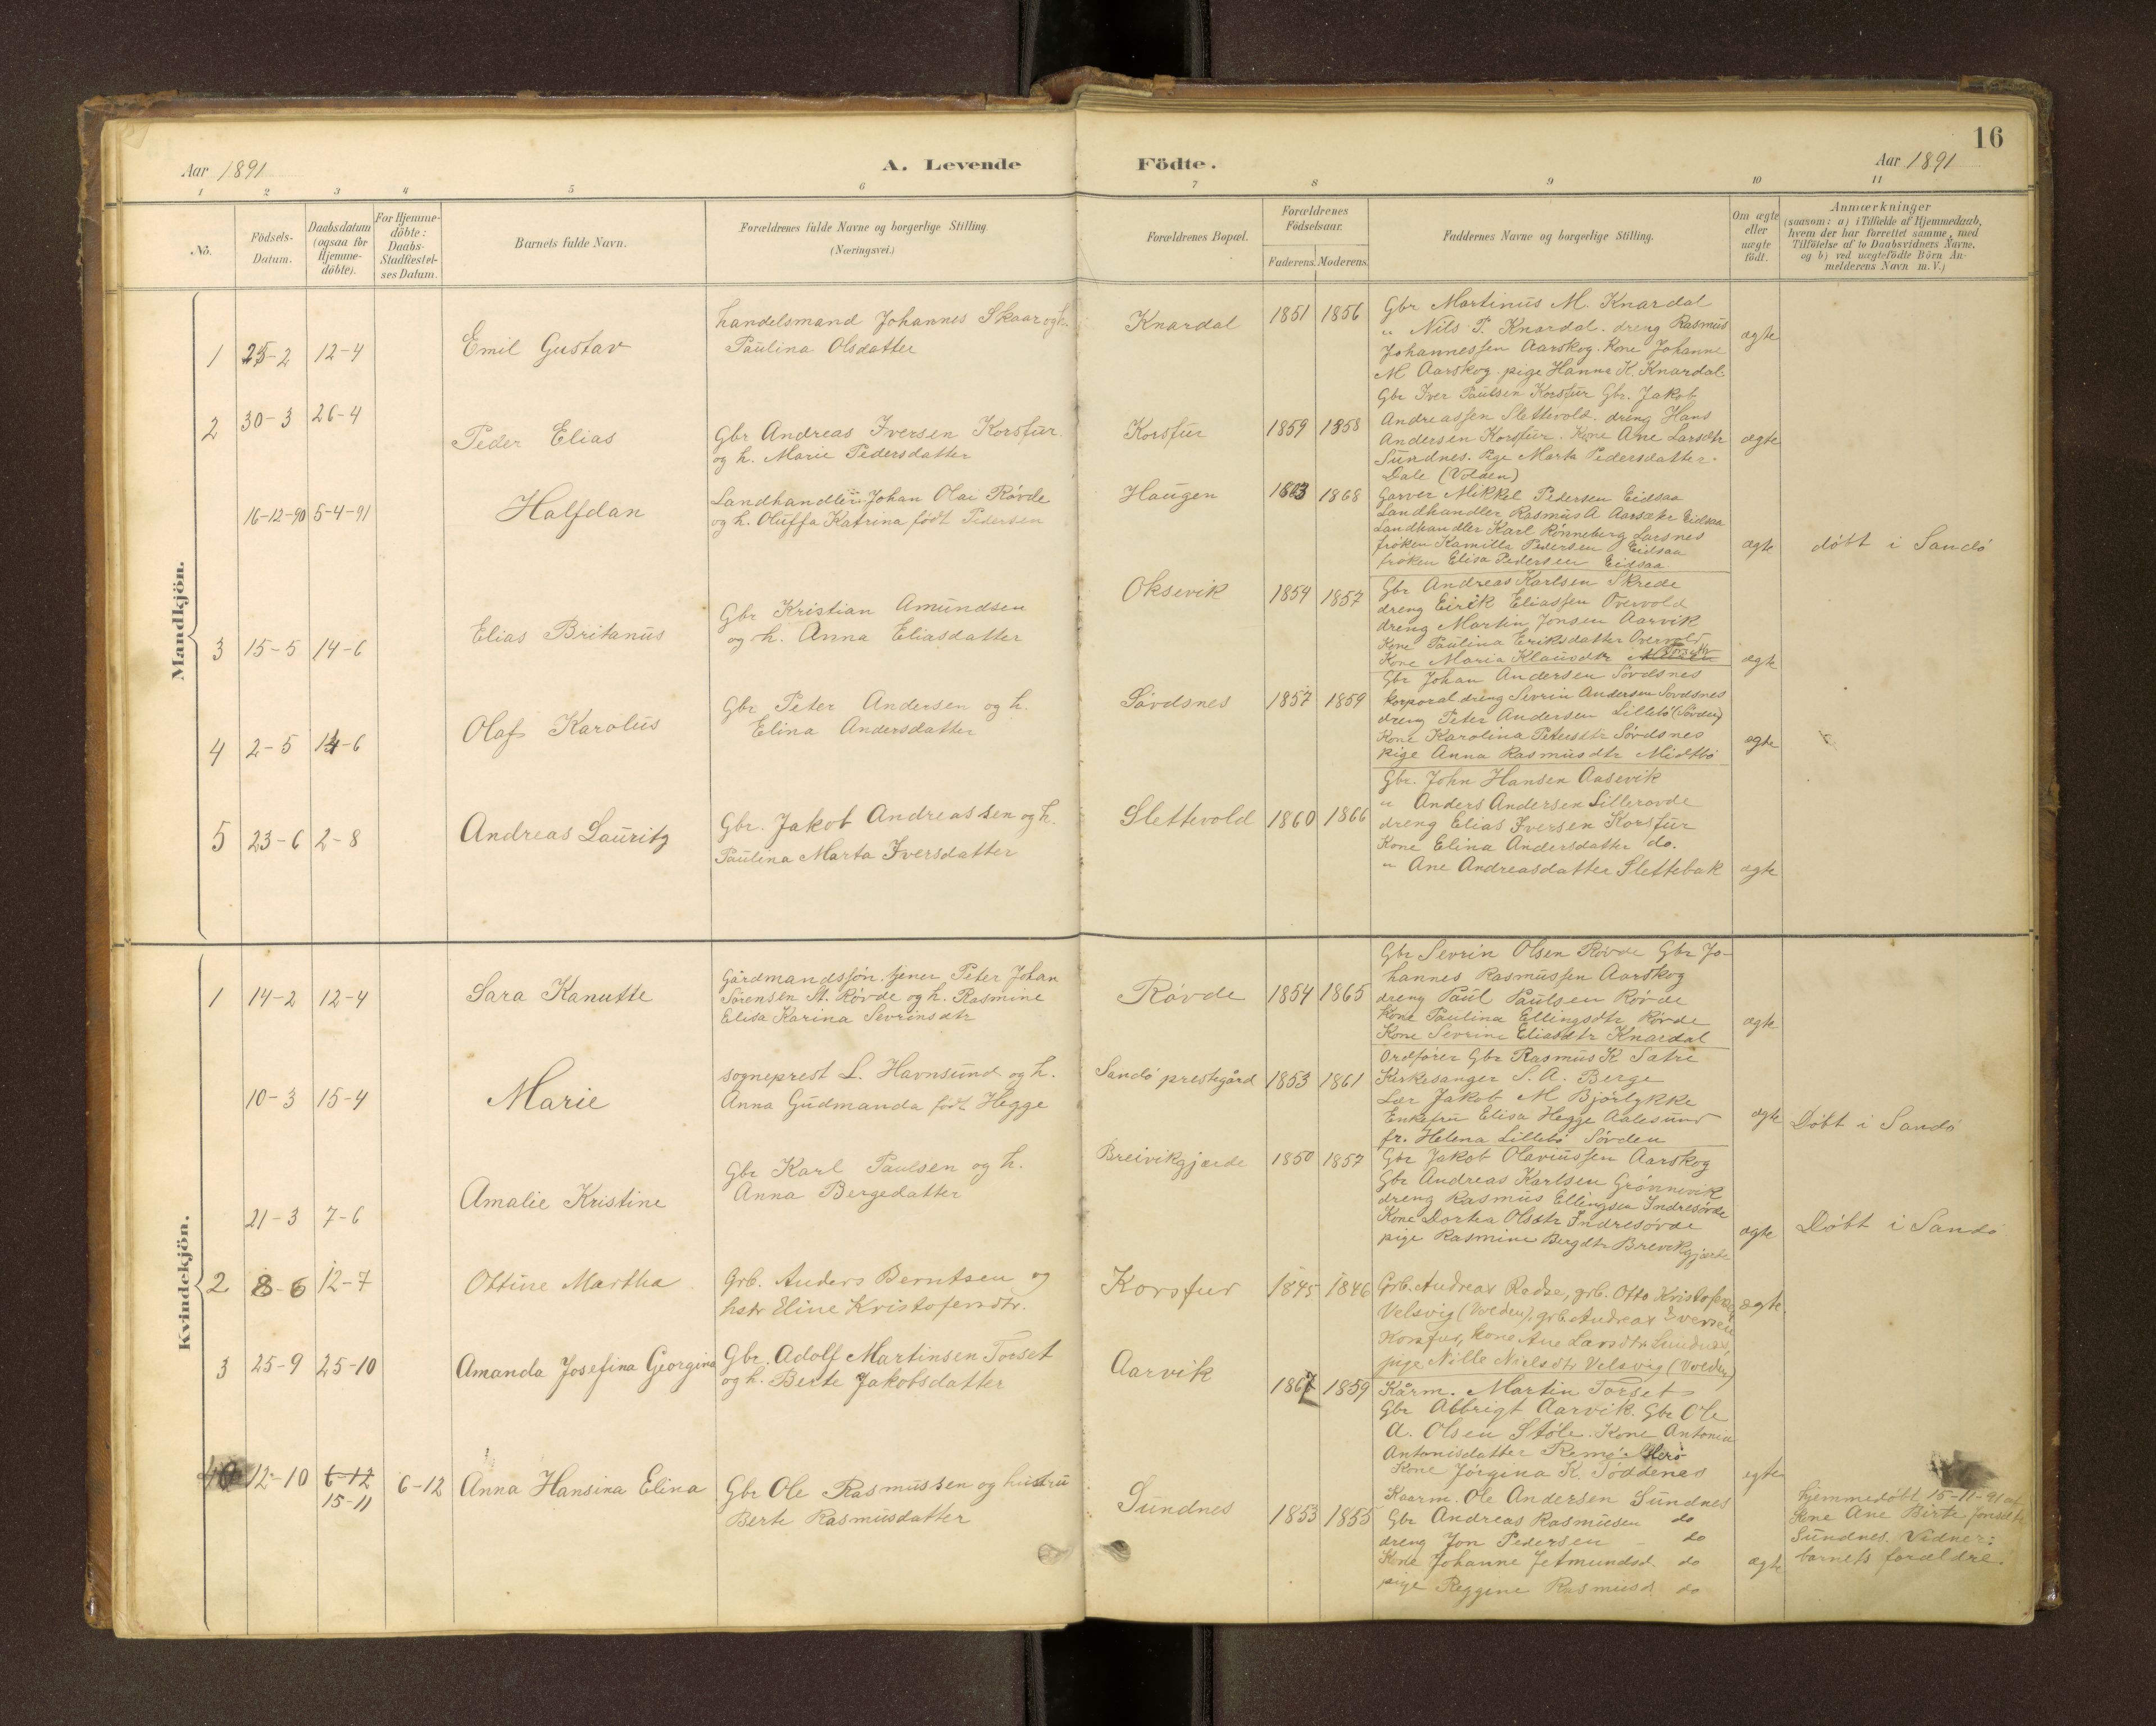 16
Aar 1891
A. Levende Födte.
Aar 1891
1 2 3 4 5 6 7 8 9 10 11
No.
Födsels-Datum.
Daabsdatum (ogsaa for Hjemme-döbte).
For Hjemme-döbte: Daabs-Stadfæstel-ses Datum.
Barnets fulde Navn.
Forældrenes fulde Navne og borgerlige Stilling.
(Næringsvei.)
Forældrenes Bopæl.
Forældrenes Födselsaar.
Faderens. Moderens.
Faddernes Navne og borgerlige Stilling.
Om ægte eller uægte födt.
Anmærkninger
(saasom: a) i Tilfælde af Hjemmedaab,
hvem der har forrettet samme, med
Tilföielse af to Daabsvidners Navne.
og b) ved uægtefödte Börn An-
melderens Navn m. V.)
Mandkjön.
1 25-2 12-4 Emil Gustav
handelsmand Johannes Skaar og h.
Paulina Olsdatter
Knardal 1851 1856
Gbr Martinus M. Knardal
" Nils P. Knardal. dreng Rasmus
Johannessen Aarskog. Kone Johanne
M Aarskog. pige Hanna K. Knardal
ægte
2 30-3 26-4 Peder Elias
Gbr Andreas Iversen Korsfur
og h. Marie Pedersdatter
Korsfur 1859 1858
Gbr Iver Paulsen Korsfur Gbr. Jakob
Andreassen Slettevold. dreng Hans
Andersen Korsfur. Kone Ane Larsdtr
Sundnes. Pige Marta Pedersdatter
Dale (Volden)
ægte
16-12-90 5-4-91 Halfdan
Landhandler Johan Olai Rövde
og h. Oluffa Katrina födt Pedersen
Haugen 1863 1868
Garver Mikkel Pedersen Eidsaa
Landhandler Rasmus A Aarsæter Eidsaa
Landhandler Karl Rönneberg Larsnes
fröken Kamilla Pedersen Eidsaa
fröken Elisa Pedersen Eidsaa
ægte
döbt i Sandö
3 15-5 14-6 Elias Britanus
Gbr Kristian Amundsen
og h. Anna Eliasdatter
Oksevik 1854 1857
Gbr Andreas Karlsen Skrede
dreng Eirik Eliassen Overvold
dreng Martin Jonsen Aarvik
Kone Paulina Eriksdatter Overvold
Kone Maria Klausdtr
ægte
4 2-5 14-6 Olaf Karolus
Gbr Peter Andersen og h.
Elina Andersdatter
Sövdsnes 1857 1859
Gbr Johan Andersen Sövdsnes
korporal dreng Sevrin Andersen Sovdsnes
dreng Peter Andersen Lillebö (Sövden)
Kone Karolina Petersdtr Sövdsnes
pige Anna Rasmusdtr Midtbö
ægte
5 23-6 2-8 Andreas Lauritz
Gbr. Jakob Andreassen og h.
Paulina Marta Iversdatter
Slettevold 1860 1866
Gbr. John Hansen Aasevik
" Anders Andersen Lillerovde
dreng Elias Iversen Korsfur
Kone Elina Andersdatter do.
" Ane Andreasdatter Slettebak
ægte
Kvindekjön.
1 14-2 12-4 Sara Kanutte
Gårdmandssön. tjener Peter Johan
Sörensen St. Rövde og h. Rasmine
Elisa Karina Sevrinsdtr
Rövde 1854 1865
Gbr Sevrin Olsen Rövde Gbr Jo-
hannes Rasmussen Aarskog
dreng Paul Paulsen Rövde
Kone Paulina Ellingsdtr Rövde
Kone Sevrine Eliasdtr Knardal
ægte
10-3 15-4 Marie
sogneprest L. Havnsund og h.
Anna Gudmanda födt Hegge
Sandö prestegård 1853 1861
Ordförer Gbr Rasmus K Sætre
Kirkesanger S. A. Berge
Lær Jakob M Björlykke
Enkefru Elisa Hegge Aalesund
fr. Helena Lillebö Sövden
ægte
Döbt i Sandö
21-3 7-6 Amalie Kristine
Gbr Karl Paulsen og h.
Anna Bergedatter
Breivikgjærde 1850 1857
Gbr Jakob Olaviussen Aarskog
Gbr Andreas Karlsen Grönnevik
dreng Rasmus Ellingsen Indresövde
Kone Dortea Olsdtr Indresövde
pige Rasmine Bergdtr Brevikgjærde
ægte
Döbt i Sandö
2 8-6 12-7 Ottine Martha
Grb. Anders Berntsen og
hstr Eline Kristofersdtr.
Korsfur 1845 1846
Grb. Andreas Radse, grb. Otto Kristofersen
Velsvig (Volden), grb. Andreas Iversen
Korsfur, kone Ane Larsdtr Sundnes,
pige Nille Nielsdtr Velsvig (Volden)
ægte.
3 25-9 25-10 Amanda Josefina Georgina
Gbr. Adolf Martinsen Torset
og h. Berte Jakobsdatter
Aarvik 1867 1859
Kårm. Martin Torset
Gbr Albrigt Aarvik. Gbr Ole
A. Olsen Støle. Kone Antonia
Antonisdatter Remö Herö
Kone Jörgina K. Töddenes
egte
4 12-10 6-12 15-11 6-12 Anna Hansina Elina
Gbr Ole Rasmussen og hustru
Berte Rasmusdatter
Sundnes 1853 1855
Kaarm. Ole Andersen Sundnes
Gbr Andreas Rasmusen do
dreng Jon Pedersen - do
Kone Johanne Jetmundsd. do
pige Reggine Rasmusd. do
ægte
hjemmedöbt 15-11-91 af
Kone Ane Birte Jonsdtr
Sundnes. Vidner:
barnets forældre.